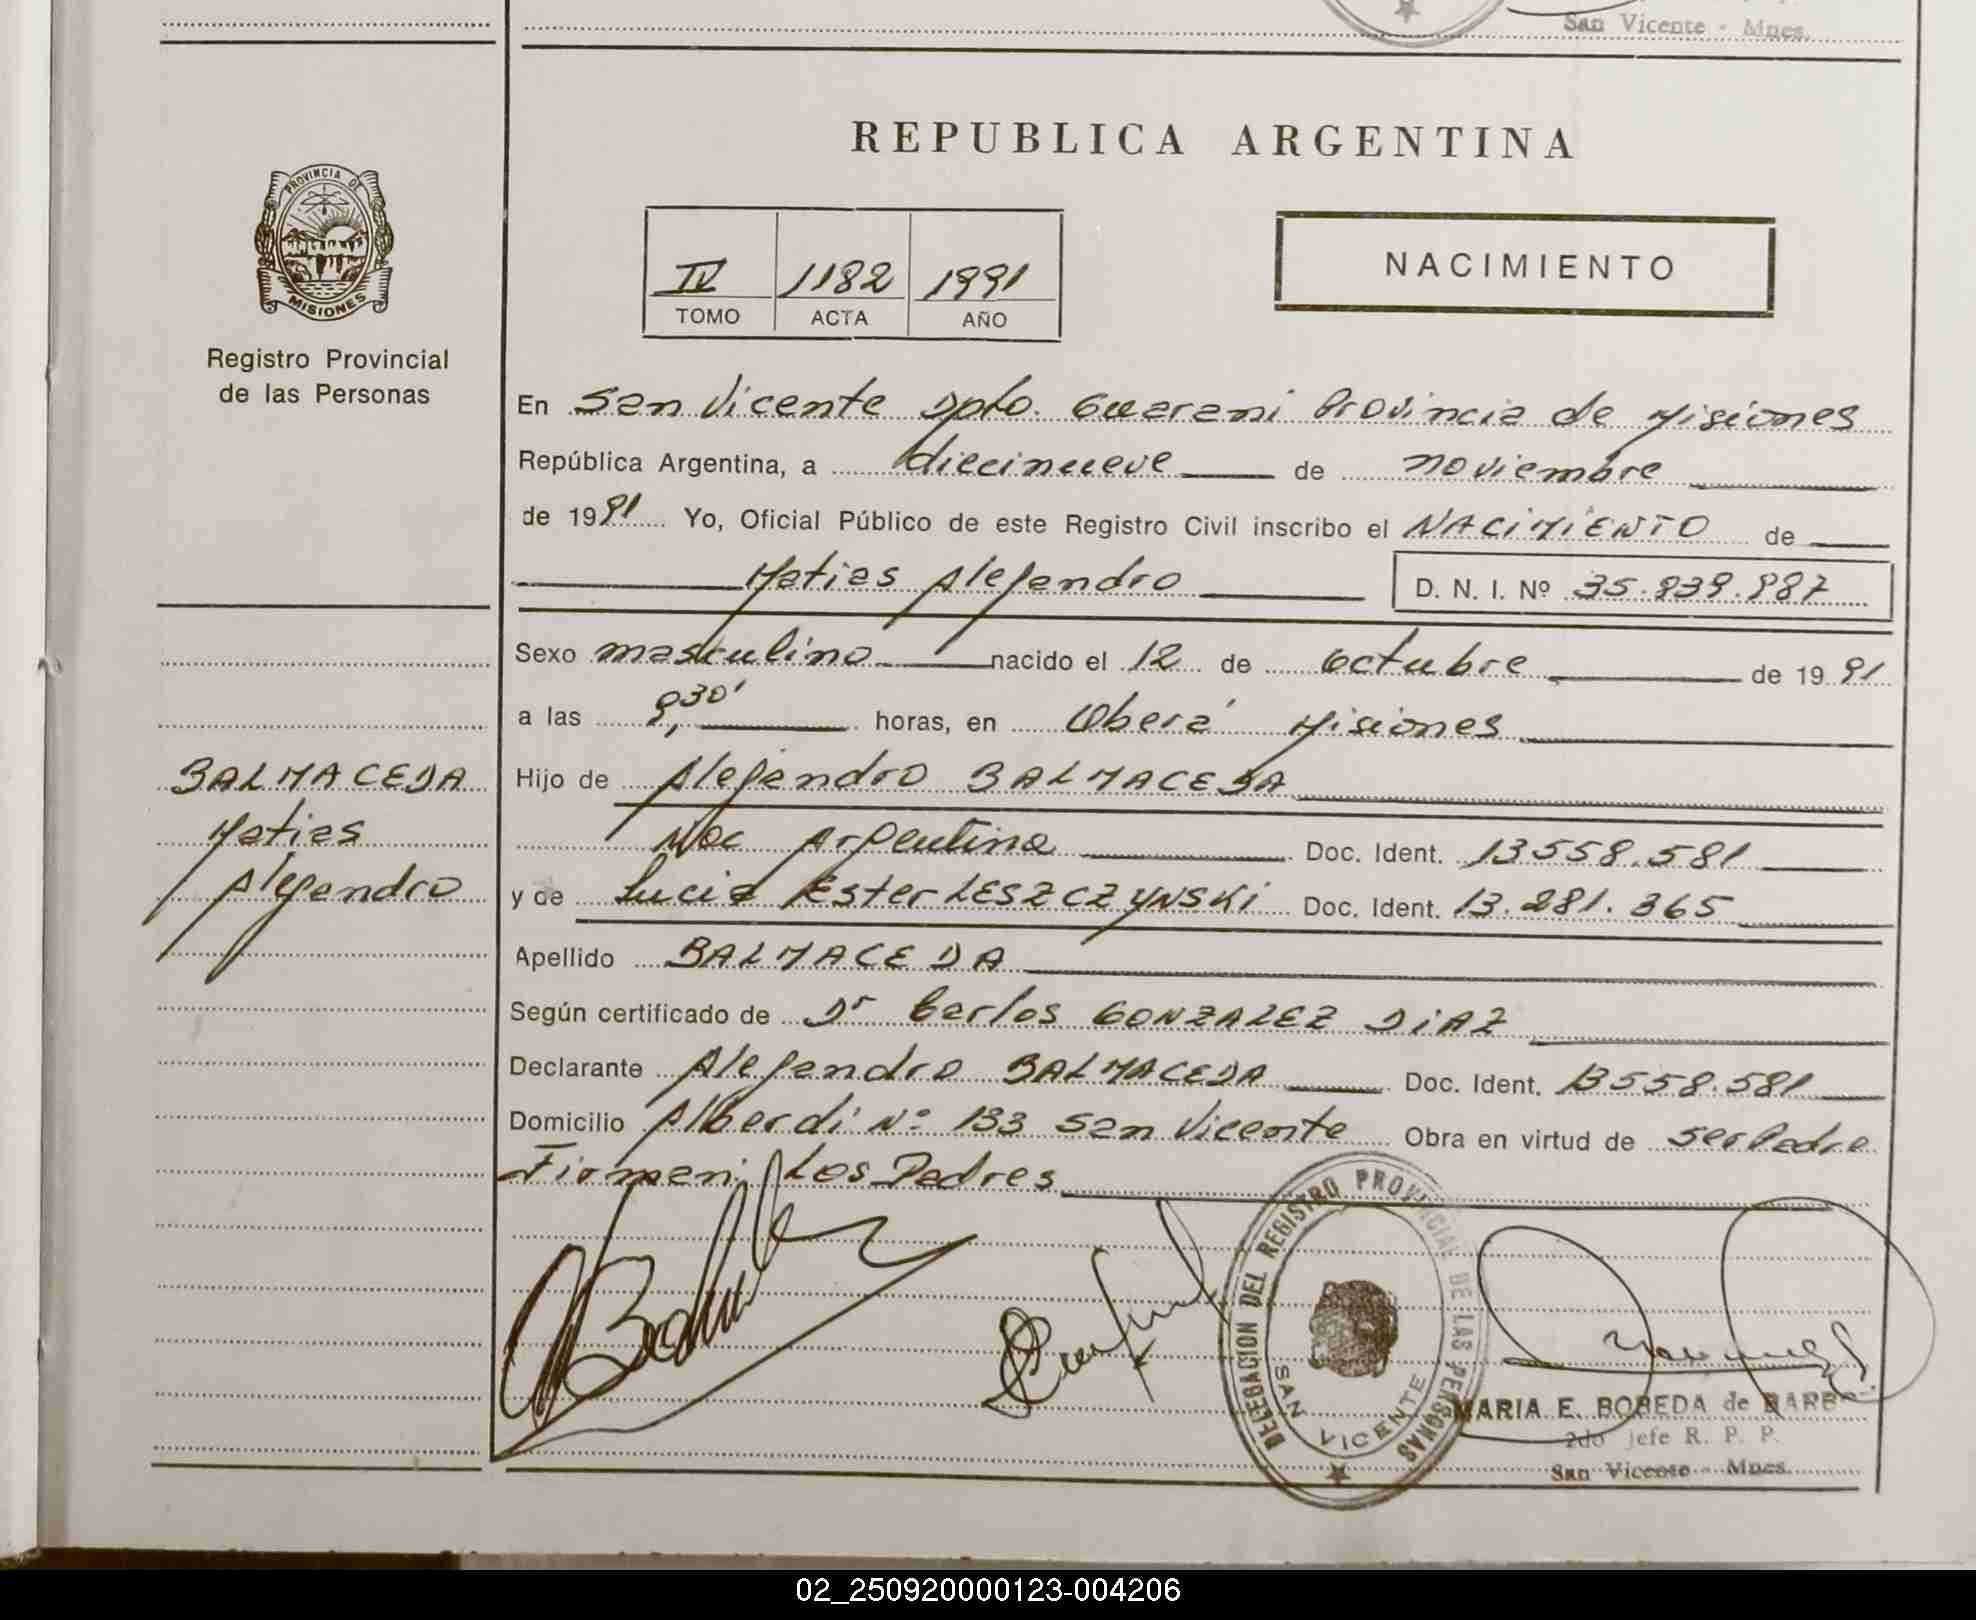 San Vicente - Mnes.
REPUBLICA ARGENTINA
PROVINCIA DE
MISIONES
Registro Provincial
de las Personas
IV 1182 1991
TOMO ACTA AÑO
NACIMIENTO
En San Vicente Dpto. Guarani Provincia de Misiones
República Argentina, a diecinueve de noviembre
de 1991 Yo, Oficial Público de este Registro Civil inscribo el NACIMIENTO de
Matias Alejandro D. N. I. Nº 35.839.987
Sexo masculino nacido el 12 de octubre de 1991
a las 9,30' horas, en Oberá Misiones
BALMACEDA
Matias
Alejandro
Hijo de Alejandro BALMACEDA
Nac Argentina Doc. Ident. 13558.581
y de Lucia Ester LESZCZYNSKI Doc. Ident. 13.281.365
Apellido BALMACEDA
Según certificado de Dr Carlos GONZALEZ DIAZ
Declarante Alejandro BALMACEDA Doc. Ident. 13558.581
Domicilio Alberdi Nº 133 San Vicente Obra en virtud de ser Padre
Firman: Los Padres
DELEGACION DEL REGISTRO PROVINCIAL DE LAS PERSONAS
SAN VICENTE
MARIA E. BOBEDA de
2do Jefe R. P. P.
San Vicente - Mnes.
02_250920000123-004206